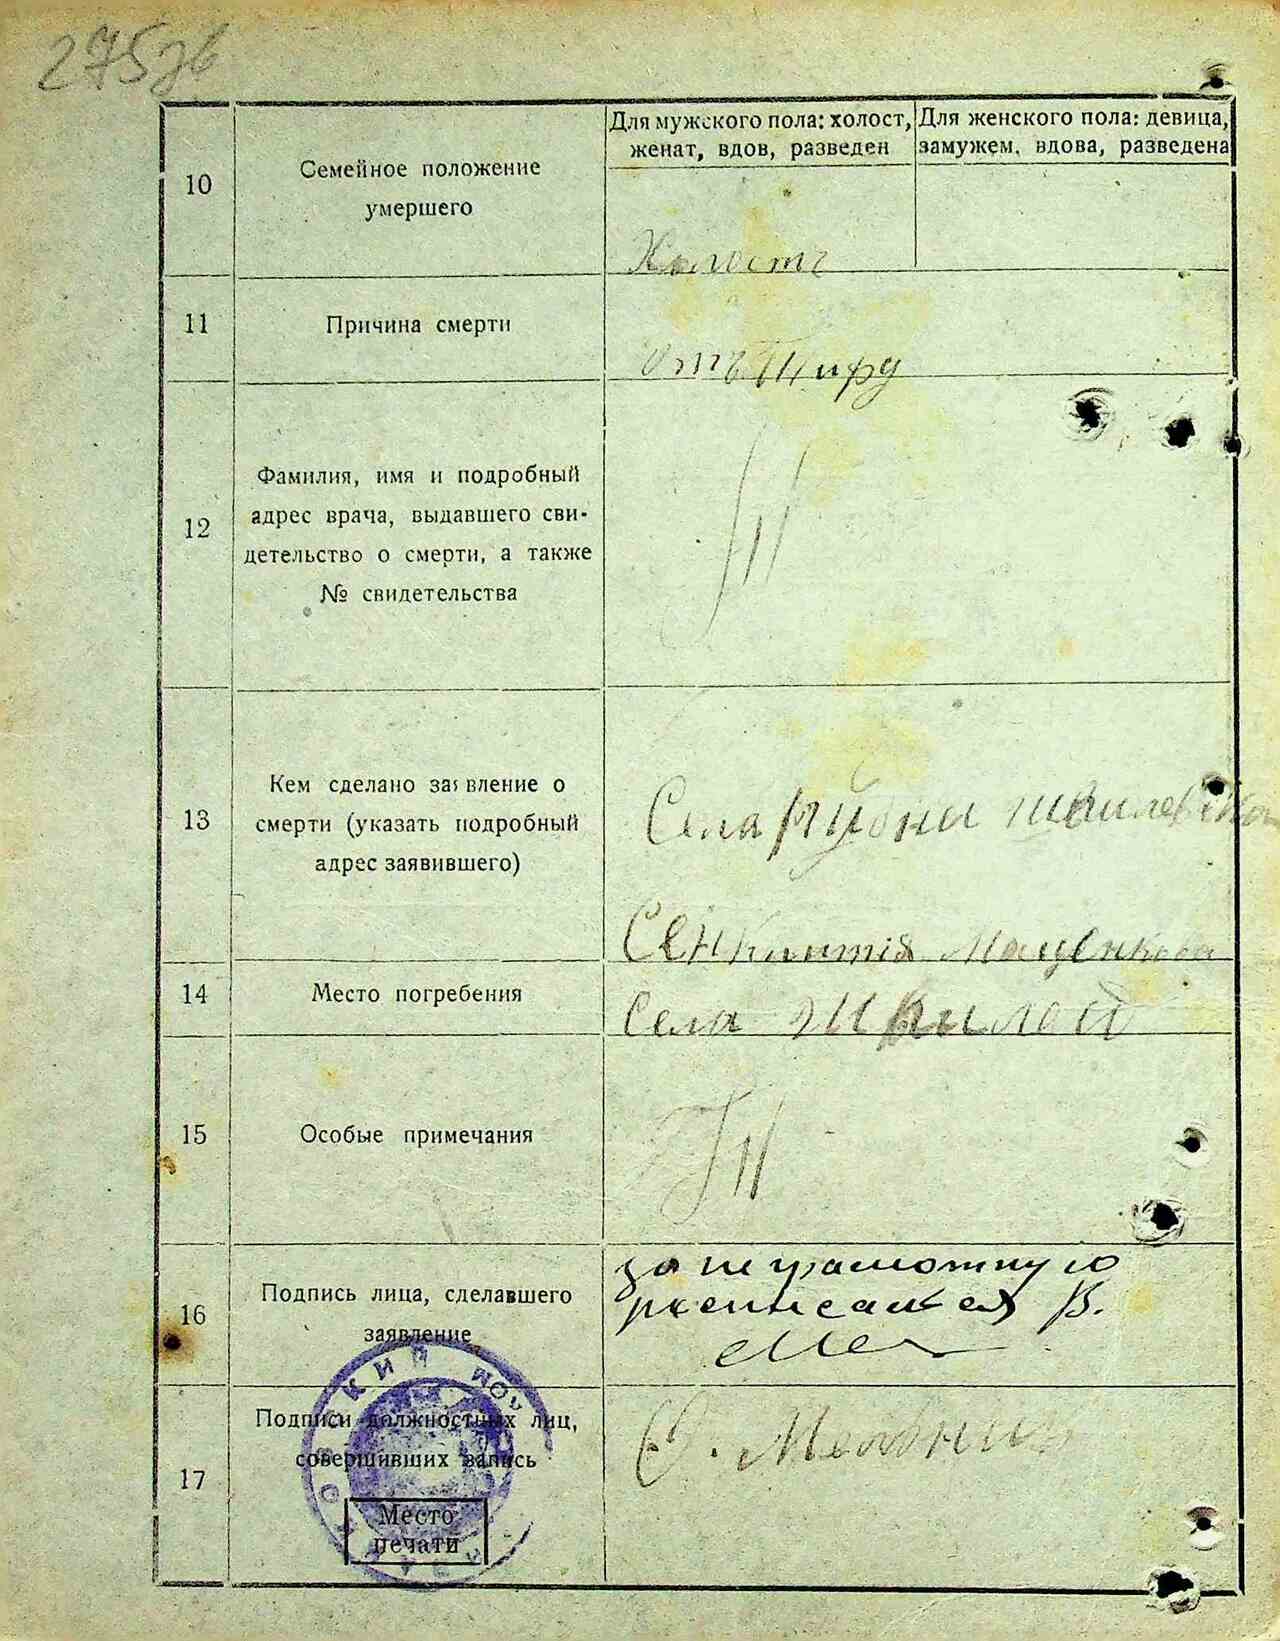 275
Для мужского пола: холост,
женат, вдов, разведен
Для женского пола: девица,
замужем, вдова, разведена
10
Семейное положение
умершего
Холостъ
11
Причина смерти
отъ Тифу
12
Фамилия, имя и подробный
адрес врача, выдавшего сви-
детельство о смерти, а также
№ свидетельства
13
Кем сделано заявление о
смерти (указать подробный
адрес заявившего)
Села
14
Место погребения
Села
15
Особые примечания
16
Подпись лица, сделавшего
заявление
за неграмотную
расписался В.
17
Подписи должностных лиц,
совершивших запись
Место
печати